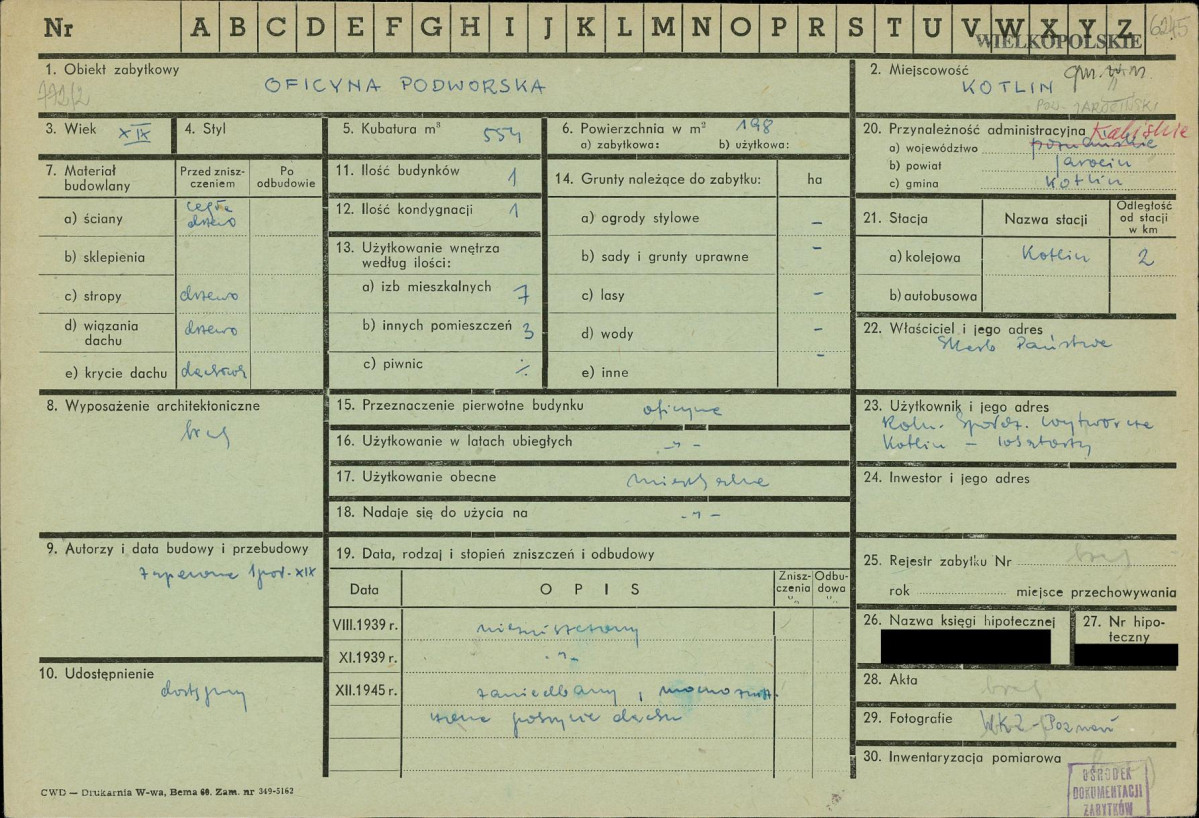 Nr A B C D E F G H I J K L M N O P R S T U V W X Y Z 6245
WIELKOPOLSKIE
1. Obiekt zabytkowy
OFICYNA PODWORSKA
772/2
2. Miejscowość
KOTLIN gm. w m.
POW. JAROCIŃSKI
3. Wiek XIX
4. Styl
5. Kubatura m³ 554
6. Powierzchnia w m² 198
a) zabytkowa: b) użytkowa:
20. Przynależność administracyjna Kaliskie
a) województwo poznańskie
b) powiat Jarocin
c) gmina Kotlin
7. Materiał budowlany
Przed znisz-
czeniem
Po
odbudowie
a) ściany cegła
drzewo
b) sklepienia
c) stropy drzewo
d) wiązania
dachu drzewo
e) krycie dachu dachówk
11. Ilość budynków 1
12. Ilość kondygnacji 1
13. Użytkowanie wnętrza
według ilości:
a) izb mieszkalnych 7
b) innych pomieszczeń 3
c) piwnic ÷
14. Grunty należące do zabytku: ha
a) ogrody stylowe –
b) sady i grunty uprawne –
c) lasy –
d) wody –
e) inne –
21. Stacja
Nazwa stacji
Odległość
od stacji
w km
a) kolejowa Kotlin 2
b) autobusowa
22. Właściciel i jego adres
Skarb Państwa
8. Wyposażenie architektoniczne
brak
15. Przeznaczenie pierwotne budynku oficyna
16. Użytkowanie w latach ubiegłych -"-
17. Użytkowanie obecne mieszkalne
18. Nadaje się do użycia na -"-
23. Użytkownik i jego adres
Roln. Spółdz. Wytwórcza
Kotlin –
24. Inwestor i jego adres
9. Autorzy i data budowy i przebudowy
zapewne I poł. XIX
19. Data, rodzaj i stopień zniszczeń i odbudowy
Data
O P I S
Znisz-
czenia
%
Odbu-
dowa
%
VIII.1939 r. niezniszczony
XI.1939 r. -"-
XII.1945 r. zaniedbany, mocno znisz-
czone poszycie dachu
25. Rejestr zabytku Nr brak
rok miejsce przechowywania
26. Nazwa księgi hipotecznej
27. Nr hipo-
teczny
10. Udostępnienie
dostępny
28. Akta brak
29. Fotografie WKZ-Poznań
30. Inwentaryzacja pomiarowa
OŚRODEK
DOKUMENTACJI
ZABYTKÓW
CWD – Drukarnia W-wa, Bema 60. Zam. nr 349-5162